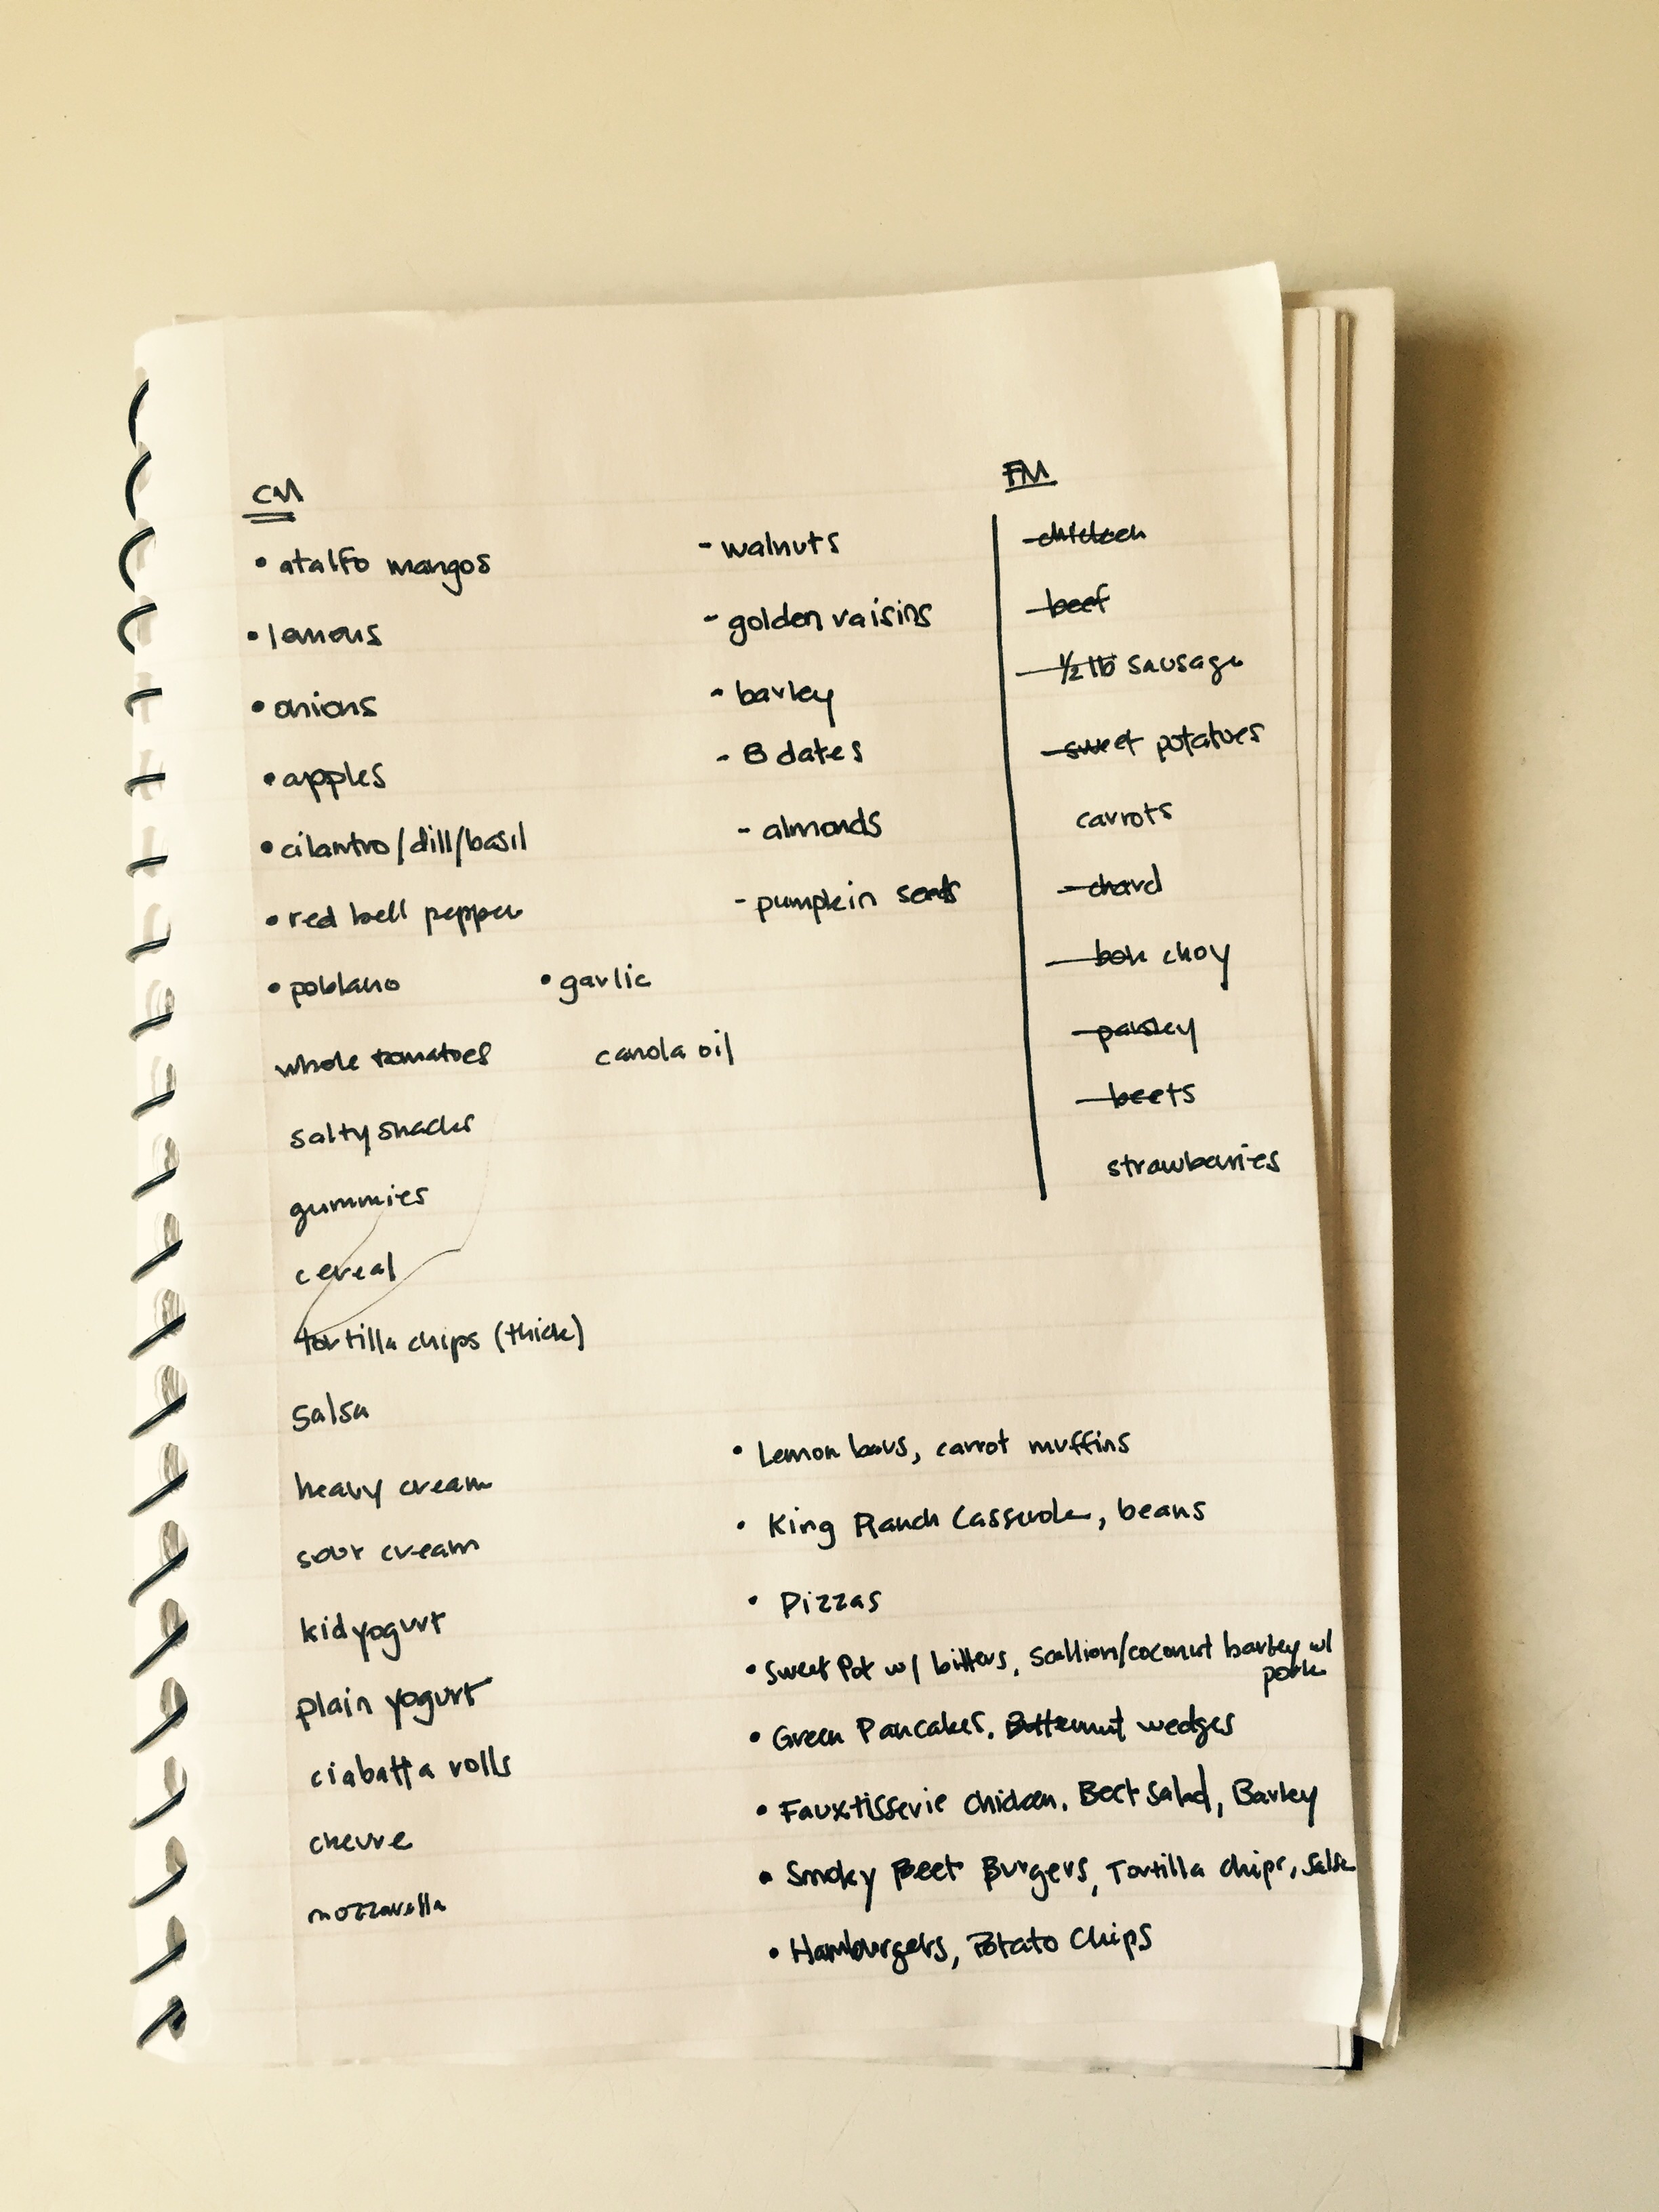 CM
• atalfo mangos
• lemons
• onions
• apples
• cilantro/dill/basil
• red bell pepper
• poblano
• garlic
whole tomatoes
canola oil
salty snacks
gummies
cereal
tortilla chips (thick)
salsa
heavy cream
sour cream
kid yogurt
plain yogurt
ciabatta rolls
chevre
mozzarella
- walnuts
- golden raisins
- barley
- 8 dates
- almonds
- pumpkin seeds
FM
chicken
beef
1/2 lb sausage
sweet potatoes
carrots
chard
bok choy
parsley
beets
strawberries
• Lemon bars, carrot muffins
• King Ranch Casserole, beans
• Pizzas
• Sweet Pot w/ bitters, Scallion/coconut barley w/
pork
• Green Pancakes, Butternut wedges
• Fauxtisserie chicken, Beet Salad, Barley
• Smoky Beet Burgers, Tortilla chips, Salsa
• Hamburgers, Potato Chips